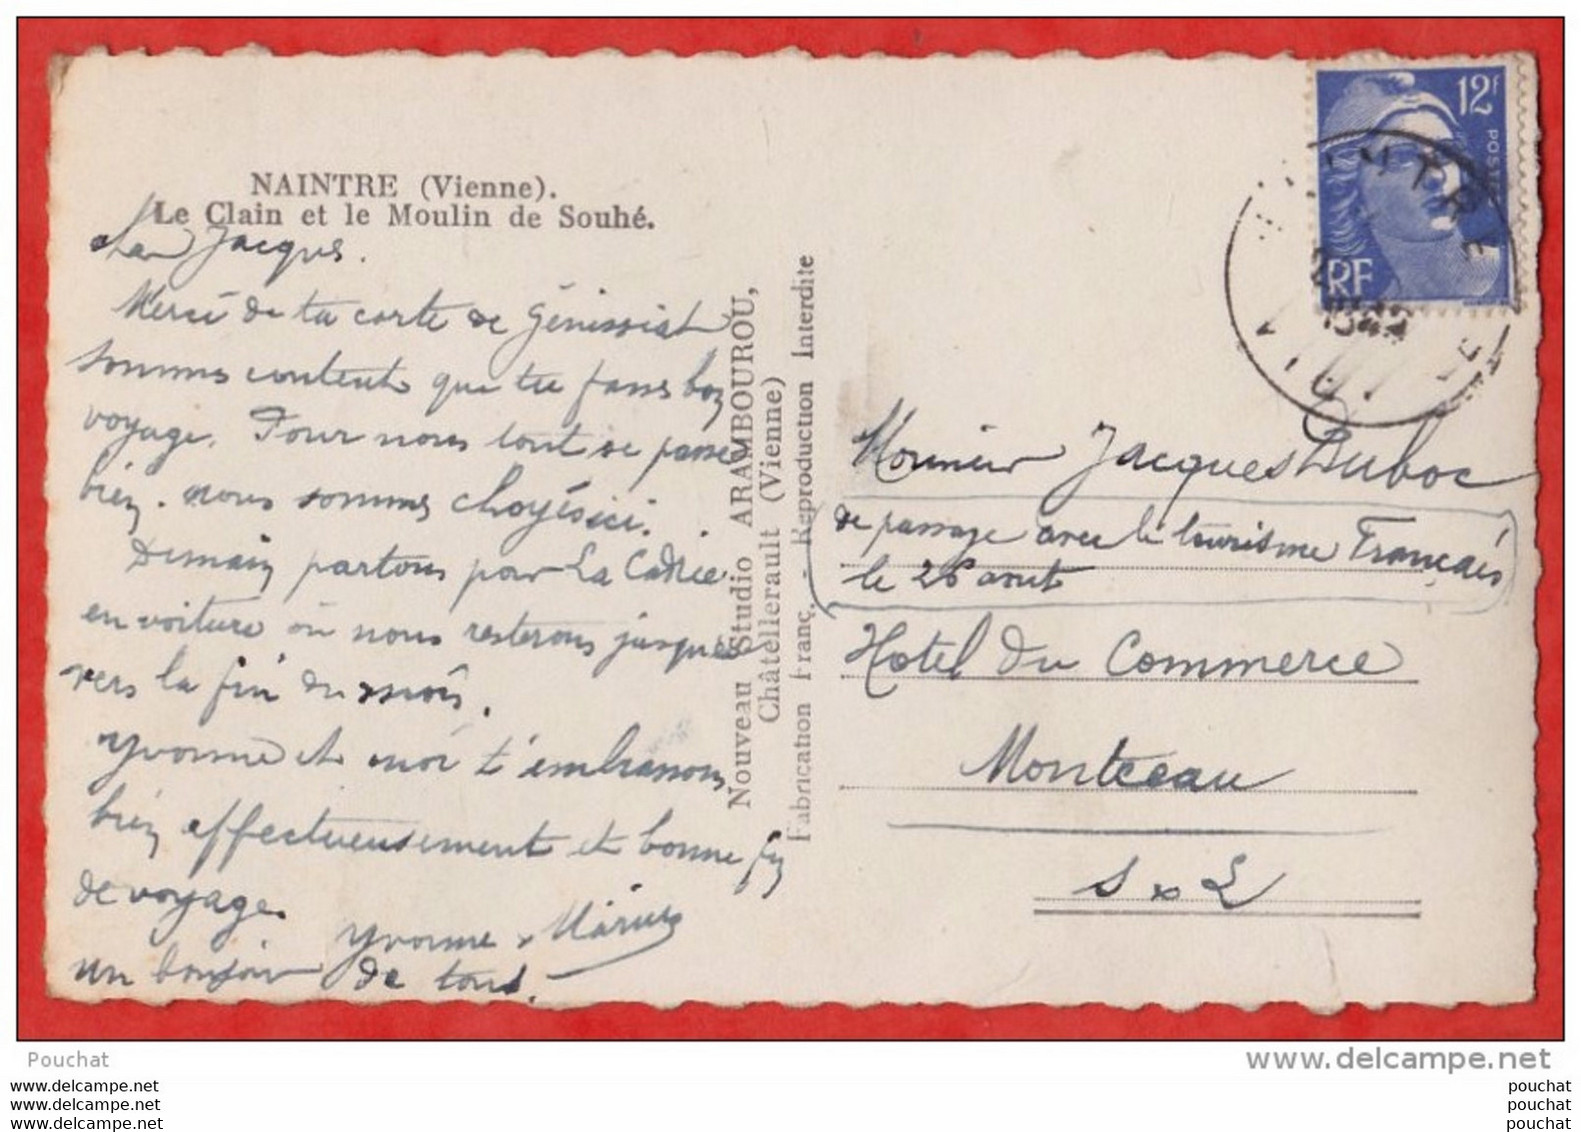 NAINTRE (Vienne).
Le Clain et le Moulin de Souhé.
cher Jacques.
Merci de ta carte de Génissiat
sommes contents que tu fasses bon
voyage. Pour nous tout se passe
bien. nous sommes choyés ici.
Demain partons pour La
en voiture où nous resterons jusque
vers la fin du mois.
Yvonne et moi t'embrassons
bien affectueusement et bonne fin
de voyage.
Yvonne &
un bonjour de tous.
Nouveau Studio ARAMBOUROU,
Châtellerault (Vienne)
Fabrication Franç. - Reproduction Interdite
12F
POSTES
RF
Monsieur Jacques Duboc
de passage avec le tourisme Français
le 26 aout
Hotel du Commerce
Montceau
S & L
Pouchat
www.delcampe.net
www.delcampe.com
www.delcampe.com
www.delcampe.com
pouchat
pouchat
pouchat